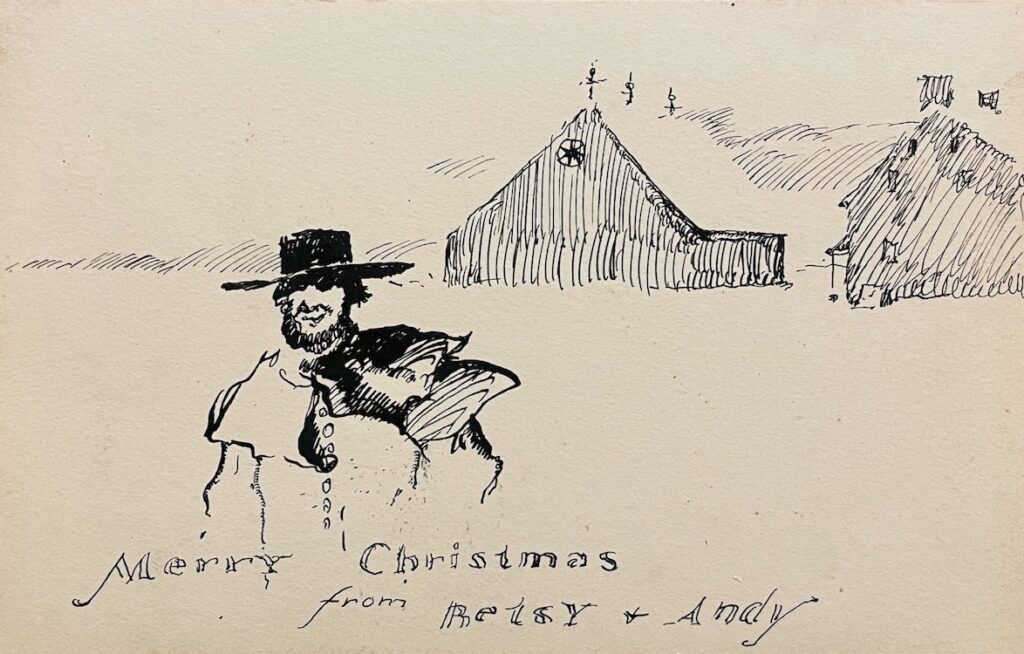 Merry Christmas
from Betsy & Andy